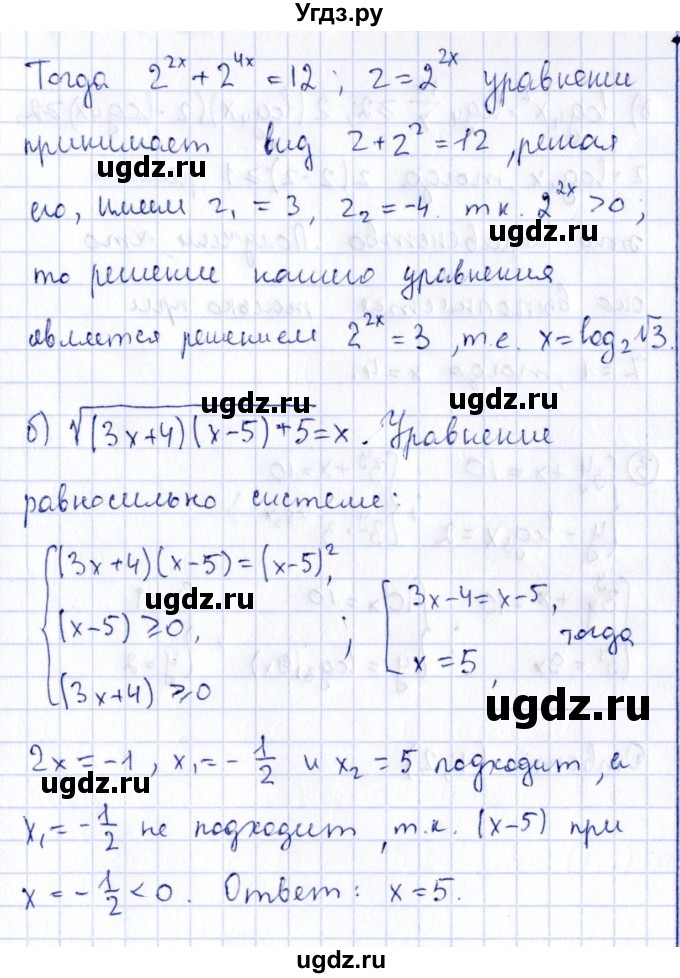 Угдз.ру
Тогда 2^{2x} + 2^{4x} = 12 ; z = 2^{2x} уравнени
принимает вид z + z^2 = 12 , решая
ugdz.ru
его, имеем z_1 = 3, z_2 = -4. т к. 2^{2x} > 0 ;
ugdz.ru
то решение нашего уравнения
является решением 2^{2x} = 3 , т.е. x = log_2 √3.
ugdz.ru
ugdz.ru
б) √((3x+4)(x-5)+5) = x . Уравнение
равносильно системе:
{ (3x+4)(x-5) = (x-5)^2,
(x-5) ≥ 0,
(3x+4) ≥ 0
ugdz.ru
; [ 3x-4 = x-5,
x = 5 , тогда
ugdz.ru
2x = -1 , x_1 = -1/2 и x_2 = 5 подходит , а
ugdz.ru
x_1 = -1/2 не подходит , т.к. (x-5) при
ugdz.ru
x = -1/2 < 0. Ответ: x = 5.
ugdz.ru
ugdz.ru